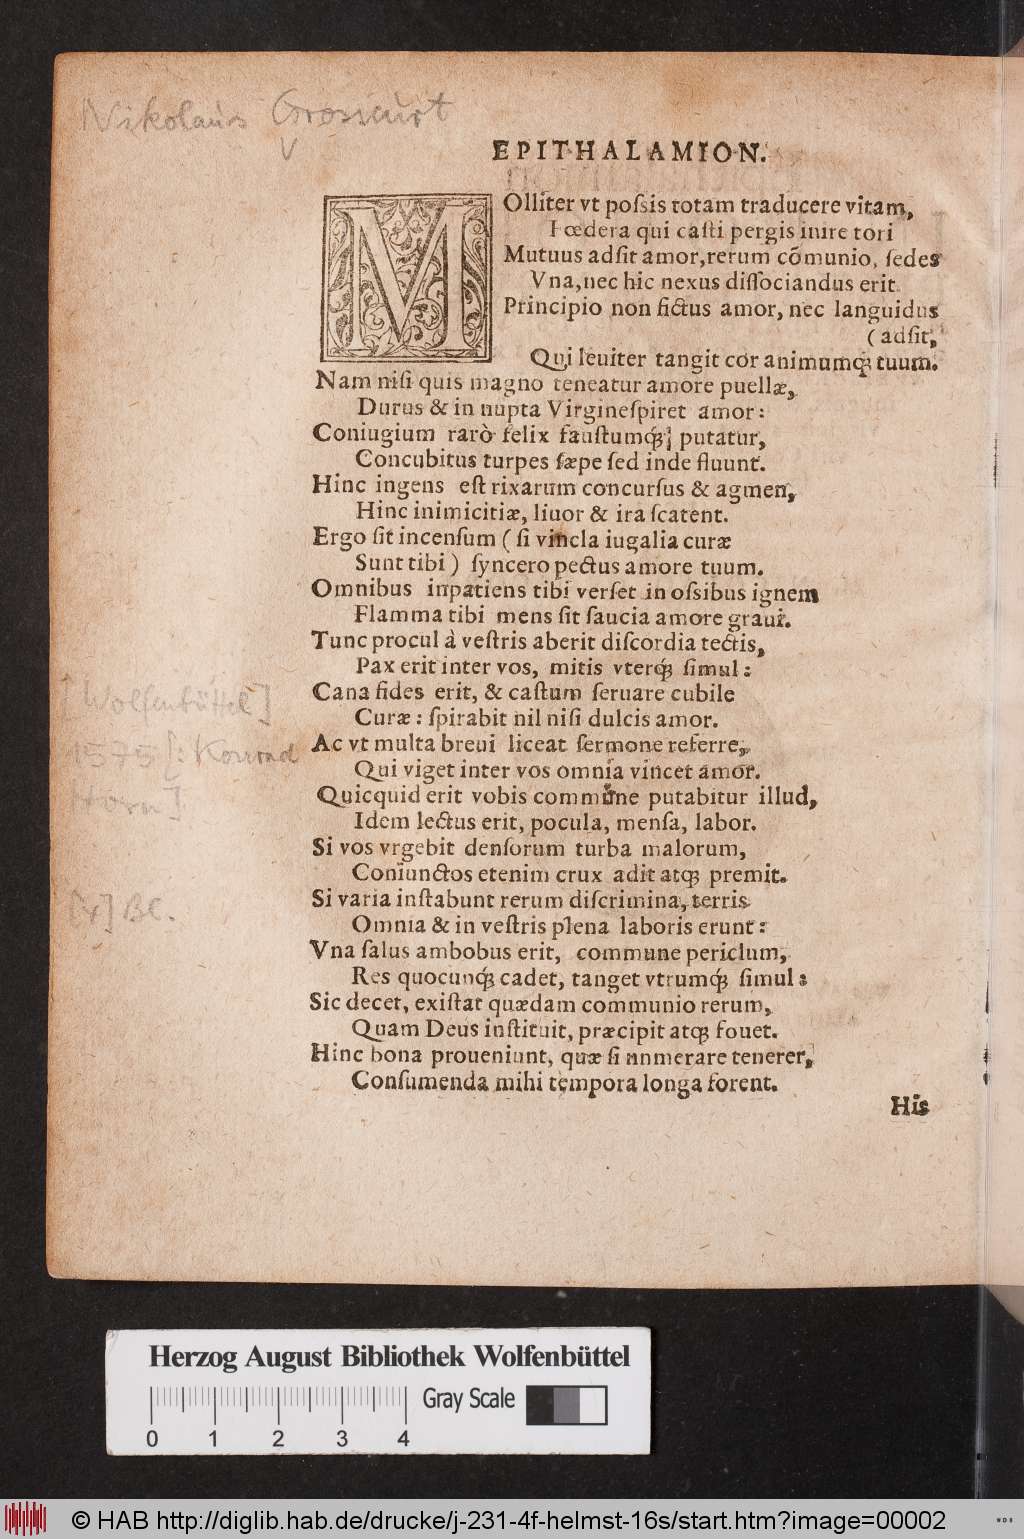 Nikolaus Grosscurt
EPITHALAMION.
MOlliter vt poſsis totam traducere vitam,
Fœdera qui caſti pergis inire tori
Mutuus adſit amor, rerum cõmunio, ſedes
Vna, nec hic nexus diſſociandus erit.
Principio non fictus amor, nec languidus
(adſit,
Qui leuiter tangit cor animumq́; tuum.
Nam niſi quis magno teneatur amore puellæ,
Durus & in nupta Virgine ſpiret amor:
Coniugium rarò felix fauſtumq́; putatur,
Concubitus turpes ſæpe ſed inde fluunt.
Hinc ingens eſt rixarum concurſus & agmen,
Hinc inimicitiæ, liuor & ira ſcatent.
Ergo ſit incenſum (ſi vincla iugalia curæ
Sunt tibi) ſyncero pectus amore tuum.
Omnibus inpatiens tibi verſet in oſsibus ignem
Flamma tibi mens ſit ſaucia amore graui.
Tunc procul à veſtris aberit diſcordia tectis,
Pax erit inter vos, mitis vterq́; ſimul:
Cana fides erit, & caſtum ſeruare cubile
Curæ: ſpirabit nil niſi dulcis amor.
Ac vt multa breui liceat ſermone referre,
Qui viget inter vos omnia vincet amor.
Quicquid erit vobis commune putabitur illud,
Idem lectus erit, pocula, menſa, labor.
Si vos vrgebit denſorum turba malorum,
Coniunctos etenim crux adit atq; premit.
Si varia inſtabunt rerum diſcrimina, terris
Omnia & in veſtris plena laboris erunt:
Vna ſalus ambobus erit, commune periclum,
Res quocunq́; cadet, tanget vtrumq́; ſimul:
Sic decet, exiſtat quædam communio rerum,
Quam Deus inſtituit, præcipit atq; fouet.
Hinc bona proueniunt, quæ ſi nnmerare tenerer,
Conſumenda mihi tempora longa forent.
His
[Wolfenbüttel]
1575 [: Konrad
Horn]
[4] Bl.
Herzog August Bibliothek Wolfenbüttel
Gray Scale
0 1 2 3 4
© HAB http://diglib.hab.de/drucke/j-231-4f-helmst-16s/start.htm?image=00002